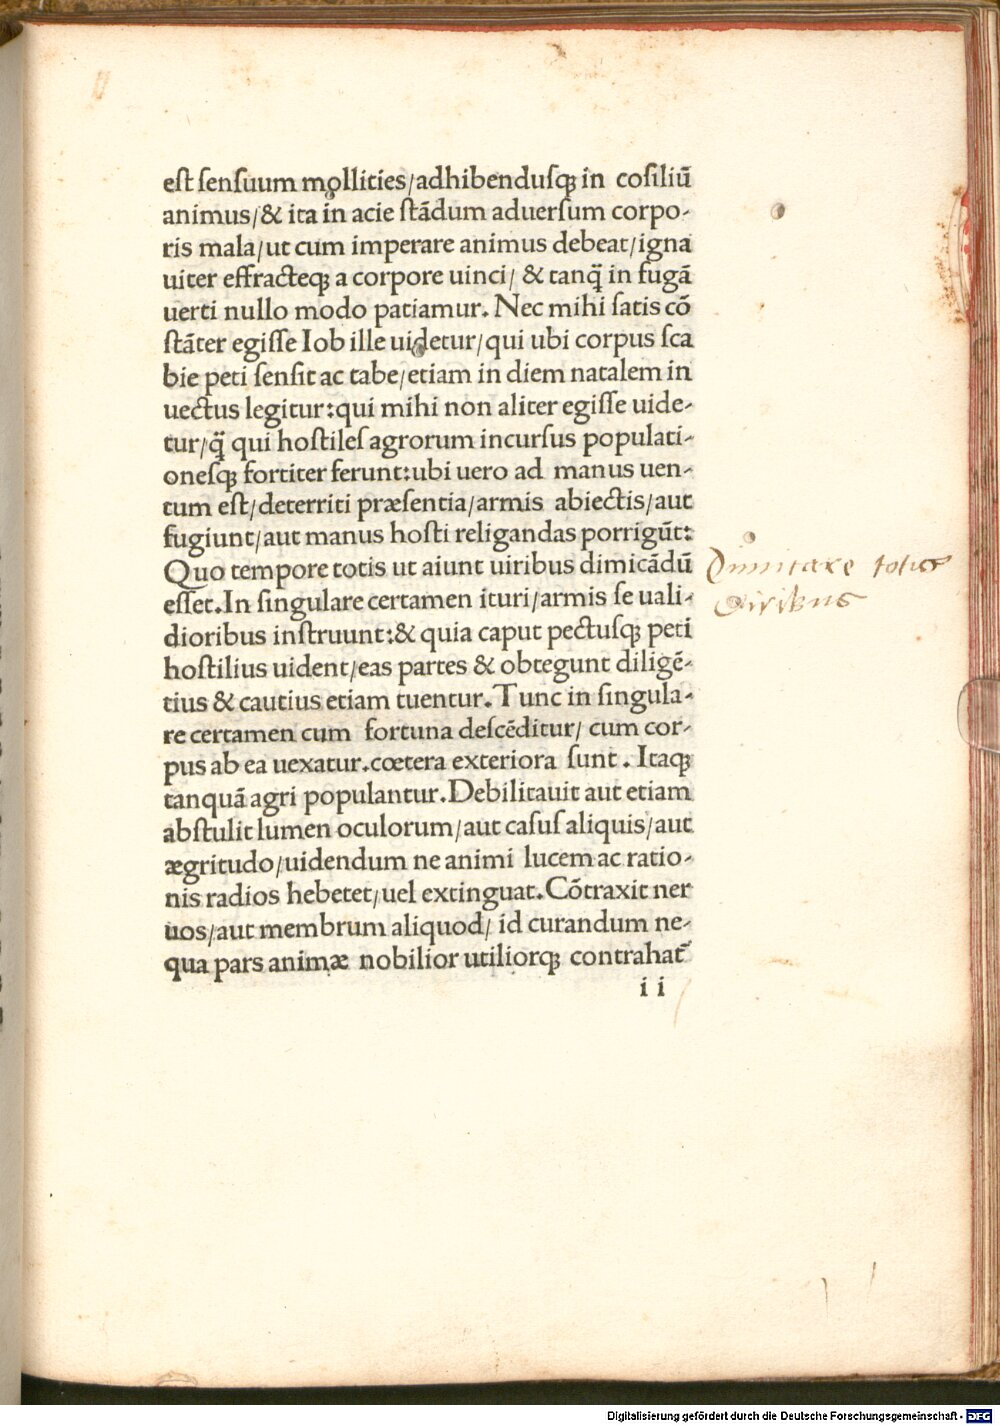 est sensuum mollities/adhibendusqꝫ in cosiliū
animus/& ita in acie stādum aduersum corpo-
ris mala/ut cum imperare animus debeat/igna
uiter effracteqꝫ a corpore uinci/ & tanq̄ in fugā
uerti nullo modo patiamur. Nec mihi satis cō
stāter egisse Iob ille uidetur/qui ubi corpus sca
bie peti sensit ac tabe/etiam in diem natalem in
uectus legitur:qui mihi non aliter egisse uide-
tur/q̄ qui hostiles agrorum incursus populati-
onesqꝫ fortiter ferunt:ubi uero ad manus uen-
tum est/deterriti præsentia/armis abiectis/aut
fugiunt/aut manus hosti religandas porrigūt:
Quo tempore totis ut aiunt uiribus dimicādū
esset. In singulare certamen ituri/armis se uali-
dioribus instruunt:& quia caput pectusqꝫ peti
hostilius uident/eas partes & obtegunt diligē-
tius & cautius etiam tuentur. Tunc in singula-
re certamen cum fortuna descēditur/ cum cor-
pus ab ea uexatur.cœtera exteriora sunt. Itaqꝫ
tanquā agri populantur.Debilitauit aut etiam
abstulit lumen oculorum/aut casus aliquis/aut
ægritudo/uidendum ne animi lucem ac ratio-
nis radios hebetet/uel extinguat.Cōtraxit ner
uos/aut membrum aliquod/ id curandum ne-
qua pars animæ nobilior utiliorqꝫ contrahat~
i i
Dimicare totis
Viribus
Digitalisierung gefördert durch die Deutsche Forschungsgemeinschaft - DFG